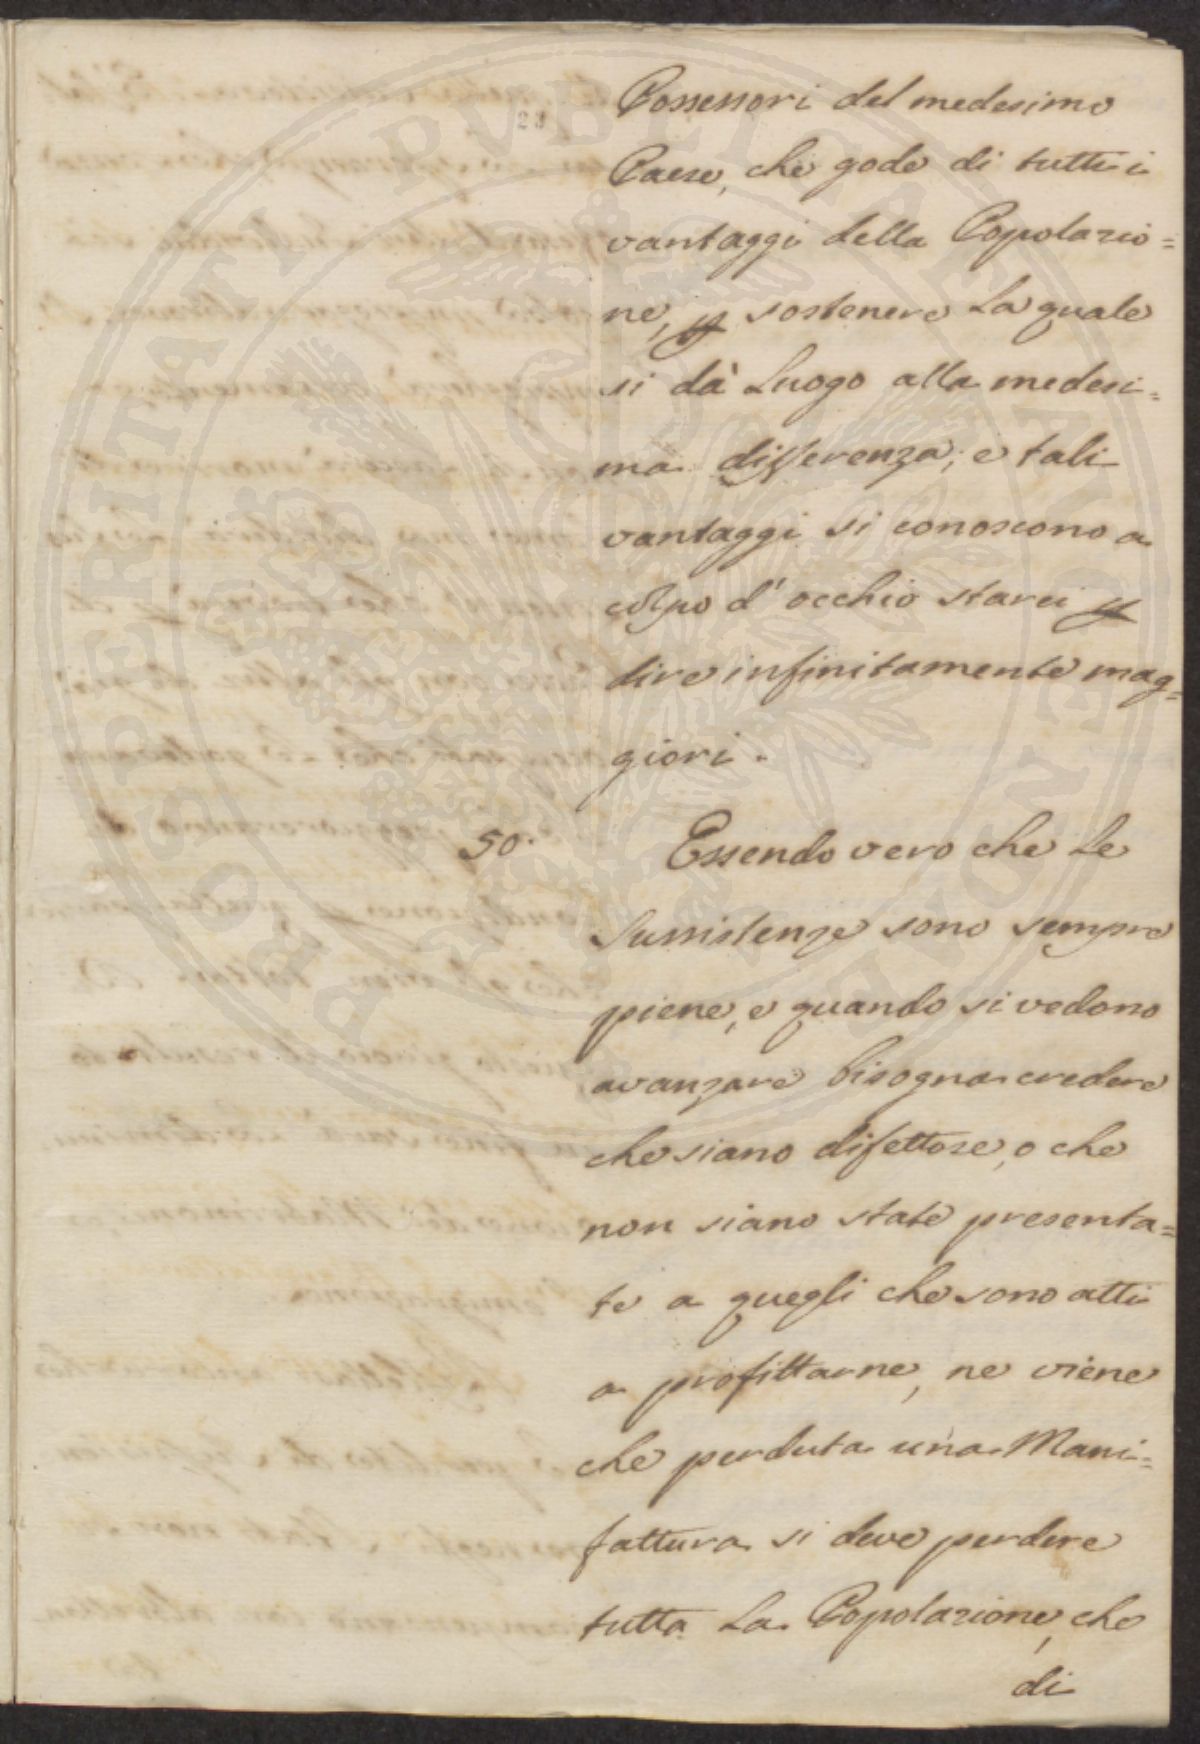 23
Possessori del medesimo
Paese, che gode di tutti i
vantaggi della Popolazio=
ne, p sostenere la quale
si dà luogo alla medesi=
ma differenza; e tali
vantaggi si conoscono a
colpo d'occhio starei p
dire infinitamente mag=
giori.
50. Essendo vero che le
Sussistenze sono sempre
piene, e quando si vedono
avanzare bisogna credere
che siano difettose, o che
non siano state presenta=
te a quegli che sono atti
a profittarne, ne viene
che perduta una Mani=
fattura si deve perdere
tutta la Popolazione, che
di
PROSPERITATI PVBLICAE